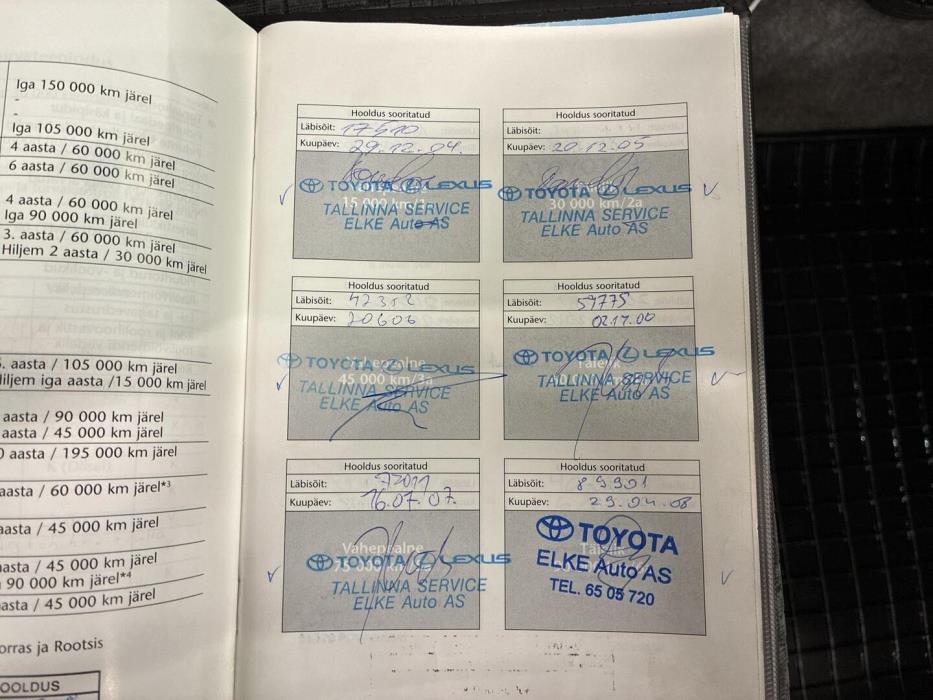 Iga 150 000 km järel
-
Iga 105 000 km järel
4 aasta / 60 000 km järel
6 aasta / 60 000 km järel
4 aasta / 60 000 km järel
Iga 90 000 km järel
3. aasta / 60 000 km järel
Hiljem 2 aasta / 30 000 km järel
. aasta / 105 000 km järel
iljem iga aasta /15 000 km järel
aasta / 90 000 km järel
aasta / 45 000 km järel
aasta / 195 000 km järel
aasta / 60 000 km järel*3
aasta / 45 000 km järel
aasta / 45 000 km järel
90 000 km järel*4
aasta / 45 000 km järel
orras ja Rootsis
OOLDUS
Hooldus sooritatud
Läbisõit: 17510
Kuupäev: 29.12.04.
TOYOTA LEXUS
15 000 km/1a
TALLINNA SERVICE
ELKE Auto AS
Hooldus sooritatud
Läbisõit:
Kuupäev: 20.12.05
TOYOTA LEXUS
30 000 km/2a
TALLINNA SERVICE
ELKE Auto AS
Hooldus sooritatud
Läbisõit: 42312
Kuupäev: 20606
Vahepealne
TOYOTA LEXUS
45 000 km/3a
TALLINNA SERVICE
ELKE Auto AS
Hooldus sooritatud
Läbisõit: 57775
Kuupäev:
TOYOTA LEXUS
Täielik
TALLINNA SERVICE
ELKE Auto AS
Hooldus sooritatud
Läbisõit: 72011
Kuupäev: 16.07.07.
Vahepealne
TOYOTA LEXUS
TALLINNA SERVICE
ELKE Auto AS
Hooldus sooritatud
Läbisõit: 89901
Kuupäev: 29.04.08
TOYOTA
Täielik
ELKE Auto AS
TEL. 65 05 720